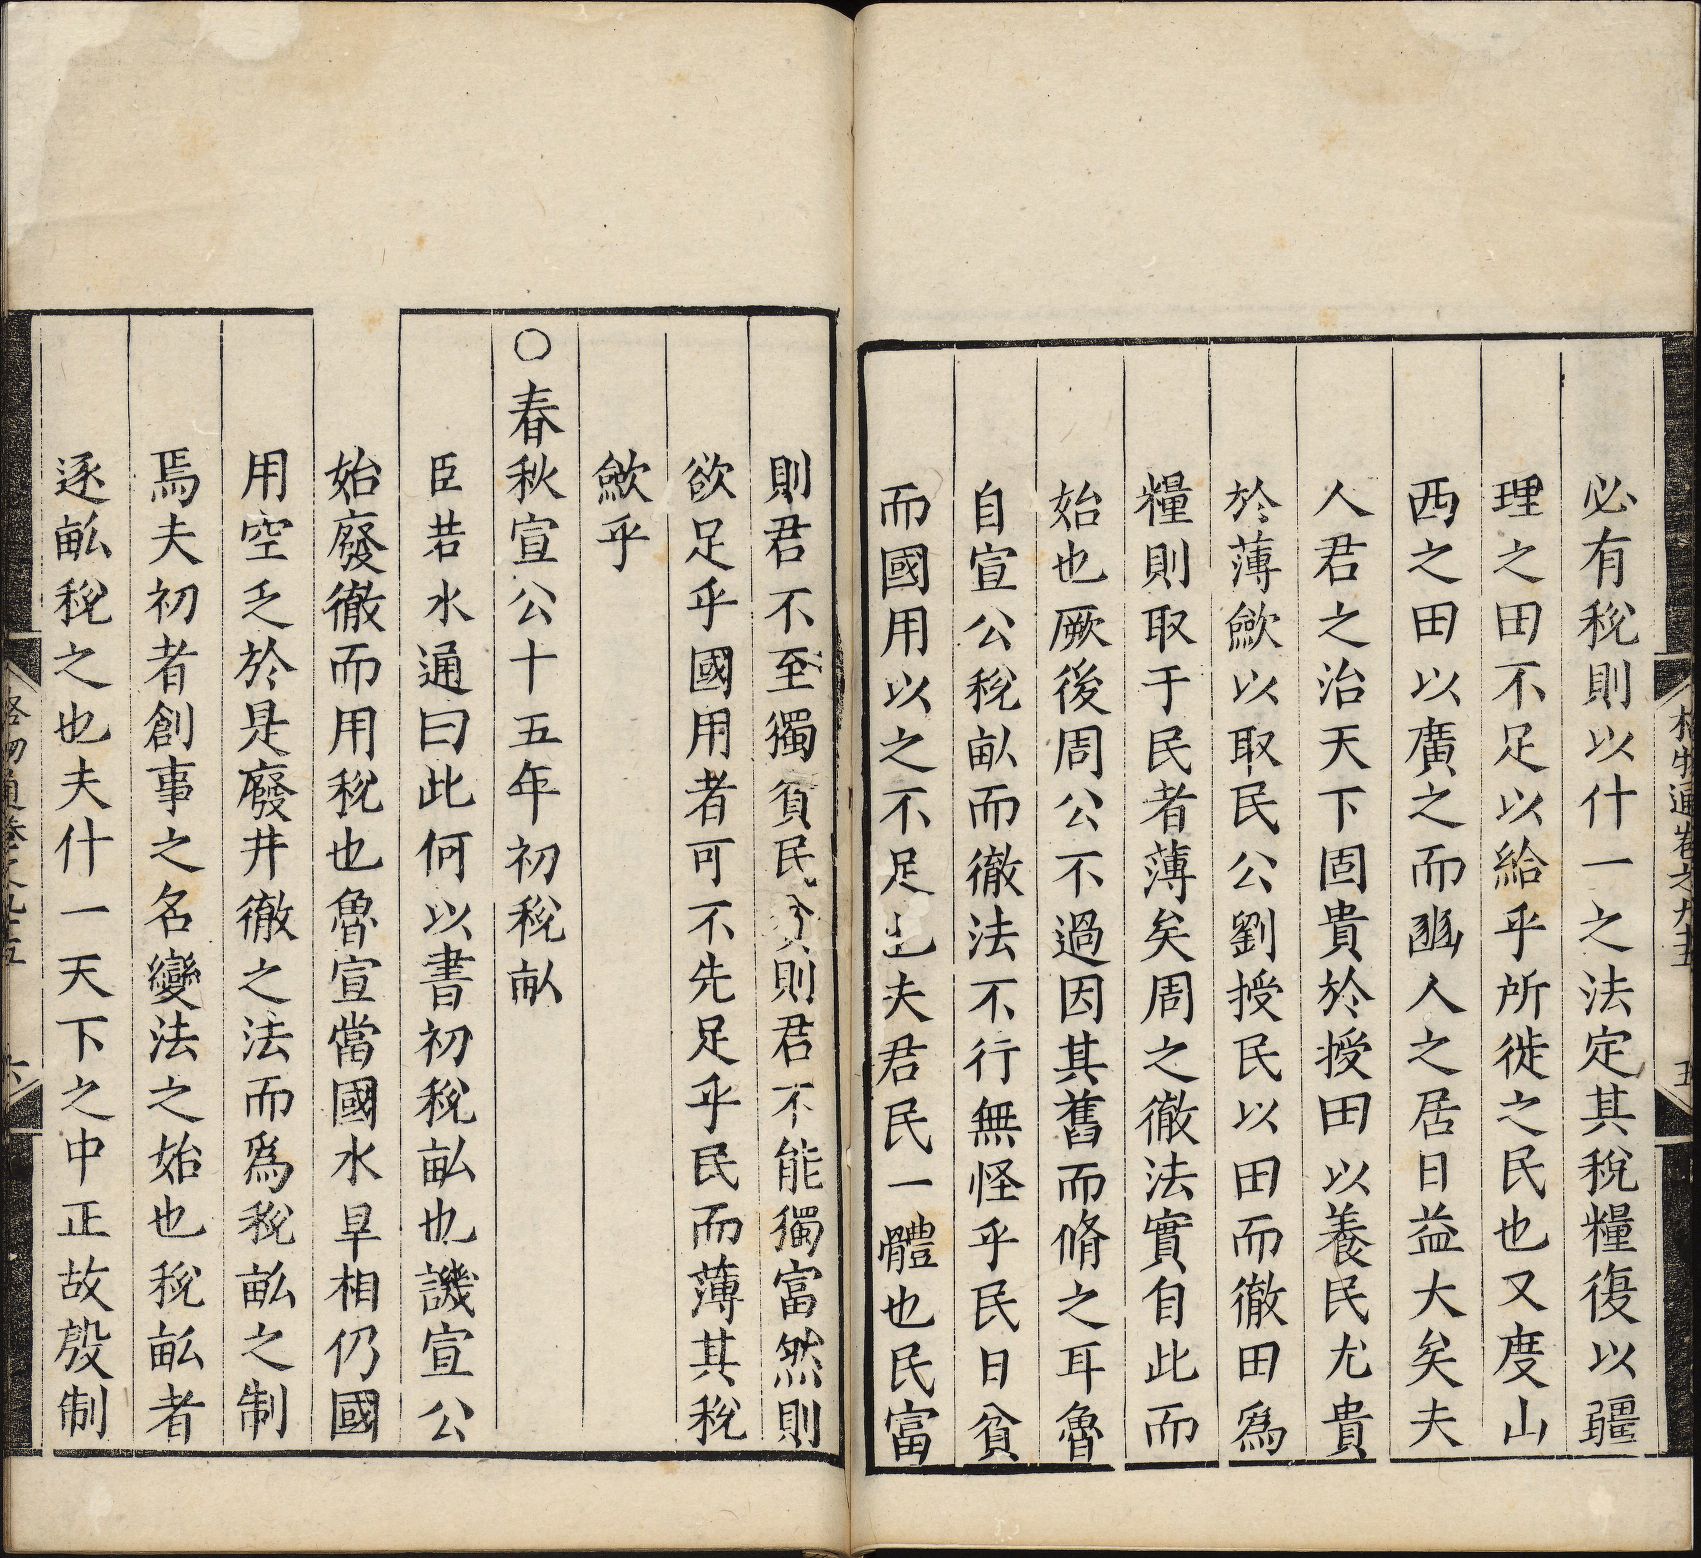 必有稅則以什一之法定其稅糧復以疆
理之田不足以給乎所徙之民也又度山
西之田以廣之而豳人之居日益大矣夫
人君之治天下固貴於授田以養民尤貴
於薄歛以取民公劉授民以田而徹田爲
糧則取于民者薄矣周之徹法實自此而
始也厥後周公不過因其舊而脩之耳魯
自宣公稅畝而徹法不行無怪乎民日貧
而國用以之不足也夫君民一體也民富
則君不至獨貧民貧則君不能獨富然則
欲足乎國用者可不先足乎民而薄其稅
歛乎
〇春秋宣公十五年初稅畝
臣若水通曰此何以書初稅畝也譏宣公
始廢徹而用稅也魯宣當國水旱相仍國
用空乏於是廢井徹之法而爲稅畝之制
焉夫初者創事之名變法之始也稅畝者
逐畝稅之也夫什一天下之中正故殷制
格物通卷之九十五
五